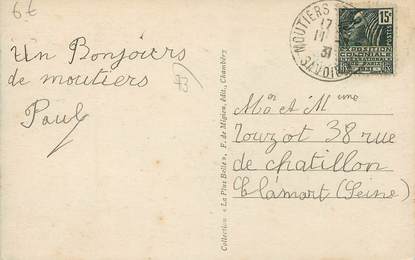 6€
Un Bonjours
de moutiers
Paul
93
Collection « La Plus Belle », F. de Migieu, édit., Chambéry
MOUTIERS
17
11
31
SAVOIE
15c
POSTES
EXPOSITION
COLONIALE
INTERNATIONALE
PARIS 1931
Mon et Mme
Touzot 38 rue
de chatillon
Clamart (Seine)